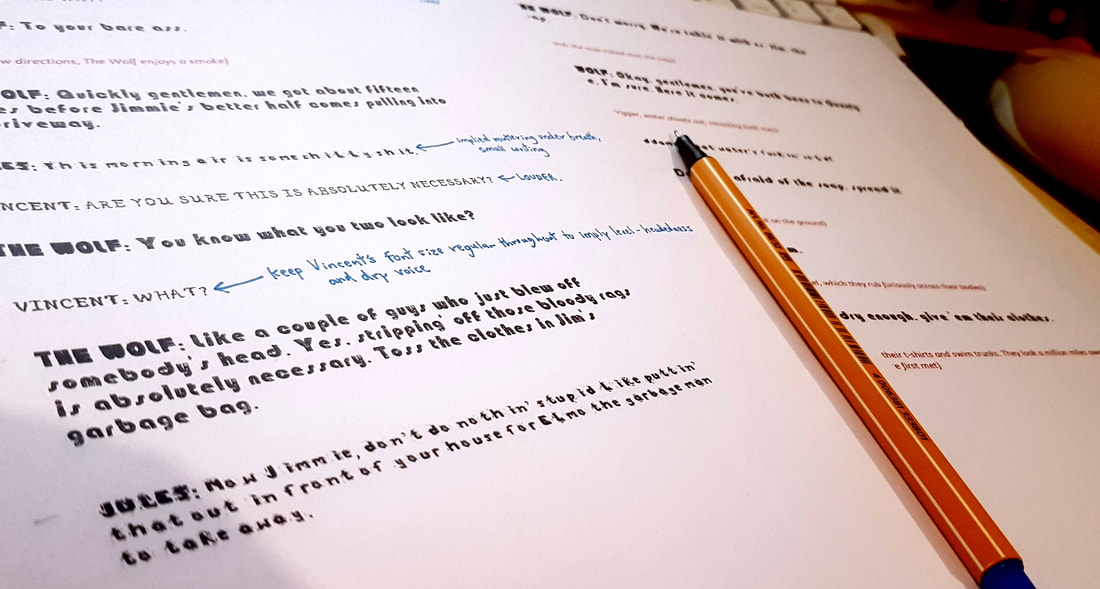 F: To your bare ass.
w directions, The Wolf enjoys a smoke)
OLF: Quickly gentlemen, we got about fifteen
es before Jimmie's better half comes pulling into
riveway.
ES: This morning air is some chilly shit.
implied muttering under breath,
small writing
NCENT: ARE YOU SURE THIS IS ABSOLUTELY NECESSARY?
LOUDER.
THE WOLF: You know what you two look like?
VINCENT: WHAT?
keep Vincent's font size regular throughout to imply level-headedness
and dry voice
THE WOLF: Like a couple of guys who just blew off
somebody's head. Yes, stripping' off those bloody rags
is absolutely necessary. Toss the clothes in Jim's
garbage bag.
JULES: Now Jimmie, don't do nothin' stupid like puttin'
that out in front of your house for Elmo the garbage man
to take away.
THE WOLF: Don't worry. We're takin' it with us. Jim, the
WOLF: Okay, gentlemen, you're both been to County
e, I'm sure. Here it comes.
trigger, water shoots out, smacking both men)
water's fuckin'
afraid of the soap, spread it
on the ground)
which they rub furiously across their bodies)
dry enough, give 'em their clothes.
their t-shirts and swim trunks. They look a million miles
e first met)
STABILO